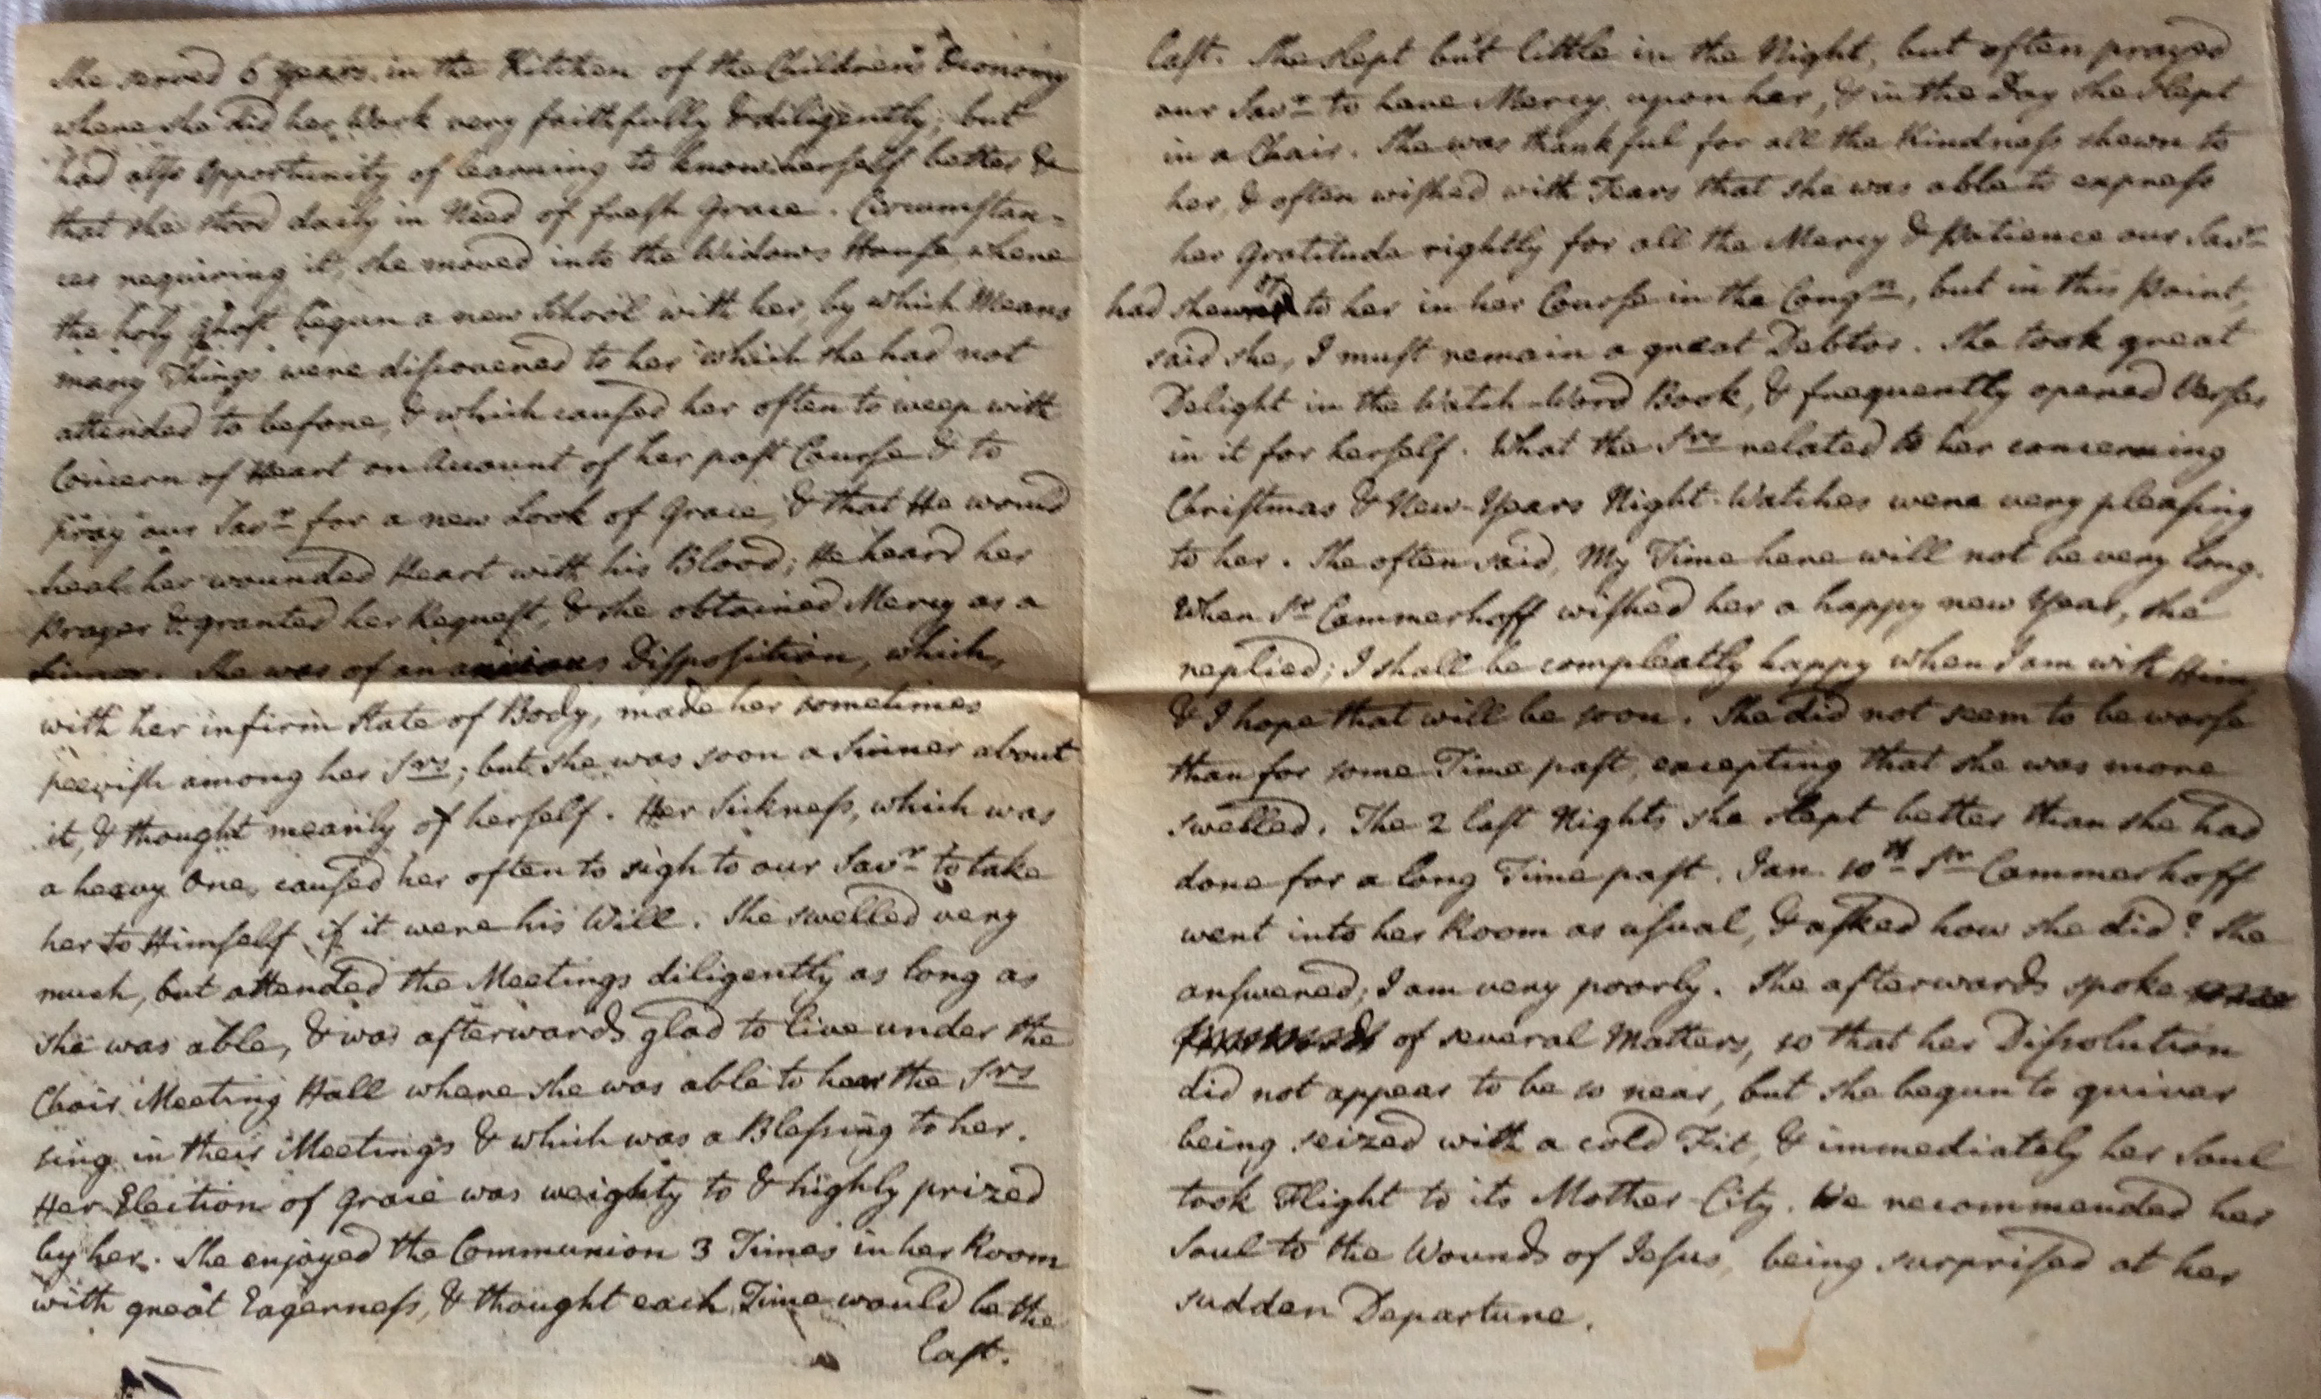 She served 6 Years in the Kitchen of the Children's Œconomy
where she did her Work very faithfully & diligently; but
had also Opportunity of learning to know herself better &
that she stood daily in Need of fresh Grace. Circumstan-
ces requiring it, she moved into the Widows House, where
the holy Ghost begun a new School with her, by which Means
many Things were discovered to her which she had not
attended to before, & which caused her often to weep with
Concern of Heart on Account of her past Course & to
pray our Savr for a new Look of Grace, & that He would
heal her wounded Heart with his Blood; He heard her
Prayer & granted her Request, & she obtained Mercy as a
Sinner. She was of an anxious Disposition, which,
with her infirm State of Body, made her sometimes
peevish among her Srs; but she was soon a Sinner about
it, & thought meanly of herself. Her Sickness, which was
a heavy One, caused her often to sigh to our Savr to take
her to Himself if it were his Will. She swelled very
much, but attended the Meetings diligently as long as
she was able, & was afterwards glad to live under the
Choir Meeting Hall where she was able to hear the Srs
sing in their Meetings & which was a Blessing to her.
Her Election of Grace was weighty to & highly prized
by her. She enjoyed the Communion 3 Times in her Room
with great Eagerness, & thought each Time would be the
last.
last. She slept but little in the Night, but often prayed
our Savr to have Mercy upon her, & in the Day she slept
in a Chair. She was thankful for all the Kindness shewn to
her, & often wished with Tears that she was able to express
her Gratitude rightly for all the Mercy & Patience our Savr
had shewn to her in her Course in the Congn, but in this Point,
said she, I must remain a great Debtor. She took great
Delight in the Watch-Word Book, & frequently opened Verses
in it for herself. What the Srs related to her concerning
Christmas & New-Years Night-Watches were very pleasing
to her. She often said, My Time here will not be very long.
When Sr Cammerhoff wished her a happy new Year, she
replied; I shall be compleatly happy when I am with Him
& I hope that will be soon. She did not seem to be worse
than for some Time past, excepting that she was more
swelled. The 2 last Nights she slept better than she had
done for a long Time past. Jan. 10th Sr Cammerhoff
went into her Room as usual, & asked how she did? She
answered; I am very poorly. She afterwards spoke
of several Matters, so that her Dissolution
did not appear to be so near, but she begun to quiver
being seized with a cold Fit, & immediately her Soul
took Flight to its Mother-City. We recommended her
Soul to the Wounds of Jesus, being surprised at her
sudden Departure.